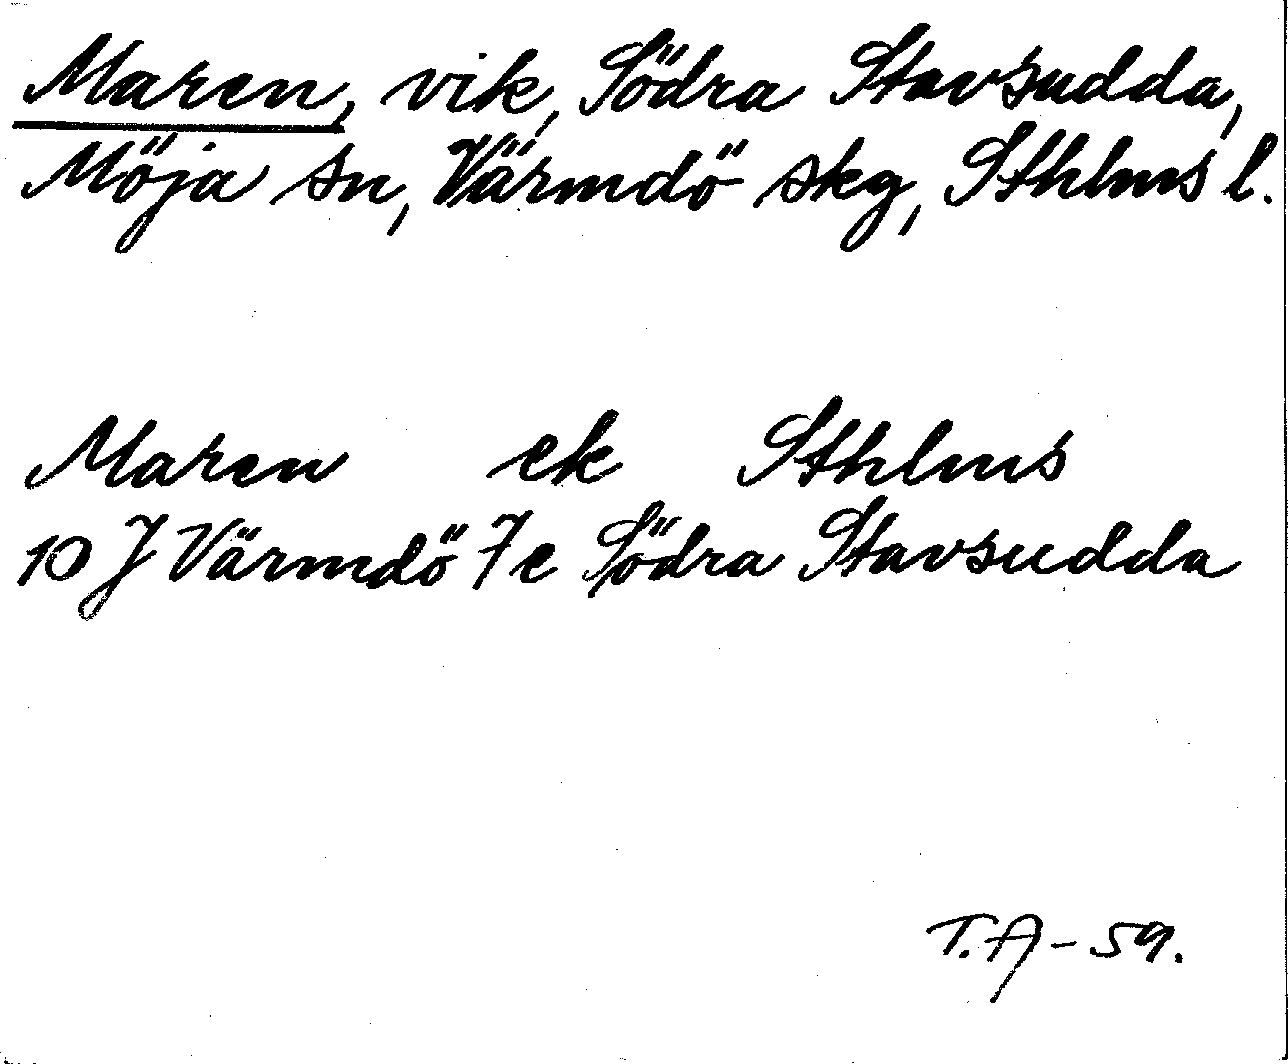 Maren, vik, Södra Stavsudda,
Möja sn, Värmdö skg, Sthlms l.
Maren ek Sthlms
10 J Värmdö 7e Södra Stavsudda
T.A-59.